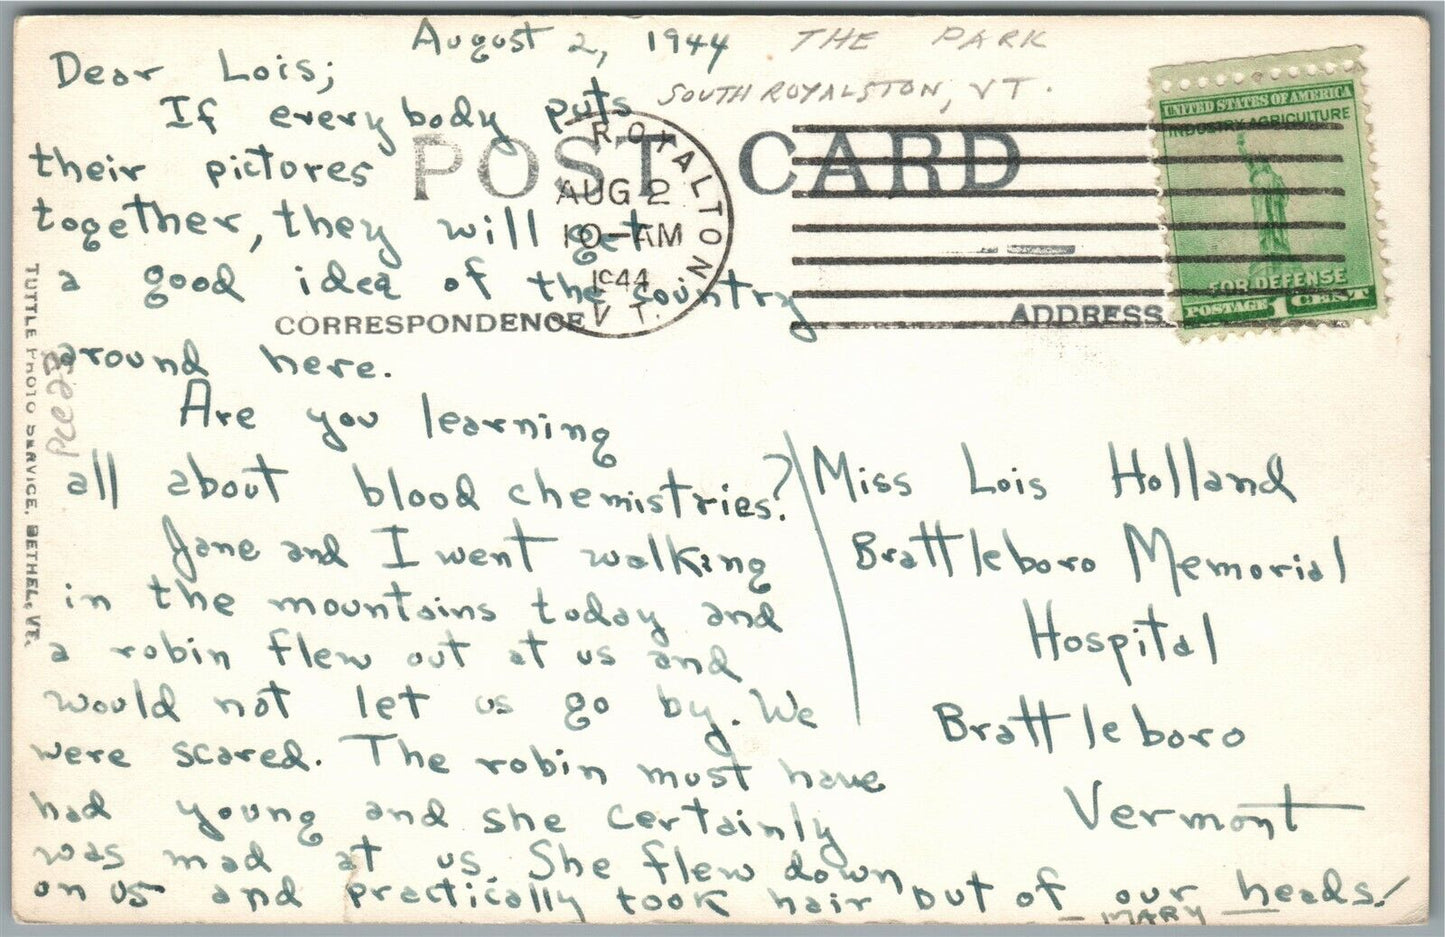 August 2, 1944
THE PARK
SOUTH ROYALSTON, VT.
Dear Lois;
If everybody puts
their pictores
together, they will get
a good idea of the country
around here.
Are you learning
all about blood chemistries?
Jane and I went walking
in the mountains today and
a robin flew out at us and
would not let us go by. We
were scared. The robin must have
had young and she certainly
was mad at us. She flew down
on us and practically took hair out of our heads!
— MARY —
POST CARD
ROYALTON, VT.
AUG 2
10-AM
1944
CORRESPONDENCE
ADDRESS
UNITED STATES OF AMERICA
INDUSTRY AGRICULTURE
FOR DEFENSE
POSTAGE 1 CENT
Miss Lois Holland
Brattleboro Memorial
Hospital
Brattleboro
Vermont
TUTTLE PHOTO SERVICE, BETHEL, VT.